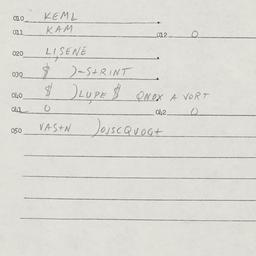 010 KEML
011 KAM 012 0
020 LIȘENÉ
030 $ )-STRINT
040 $ )LUPE $ QNOX A VORT
041 0 042 0
050 VASTN )OISCQVOGT